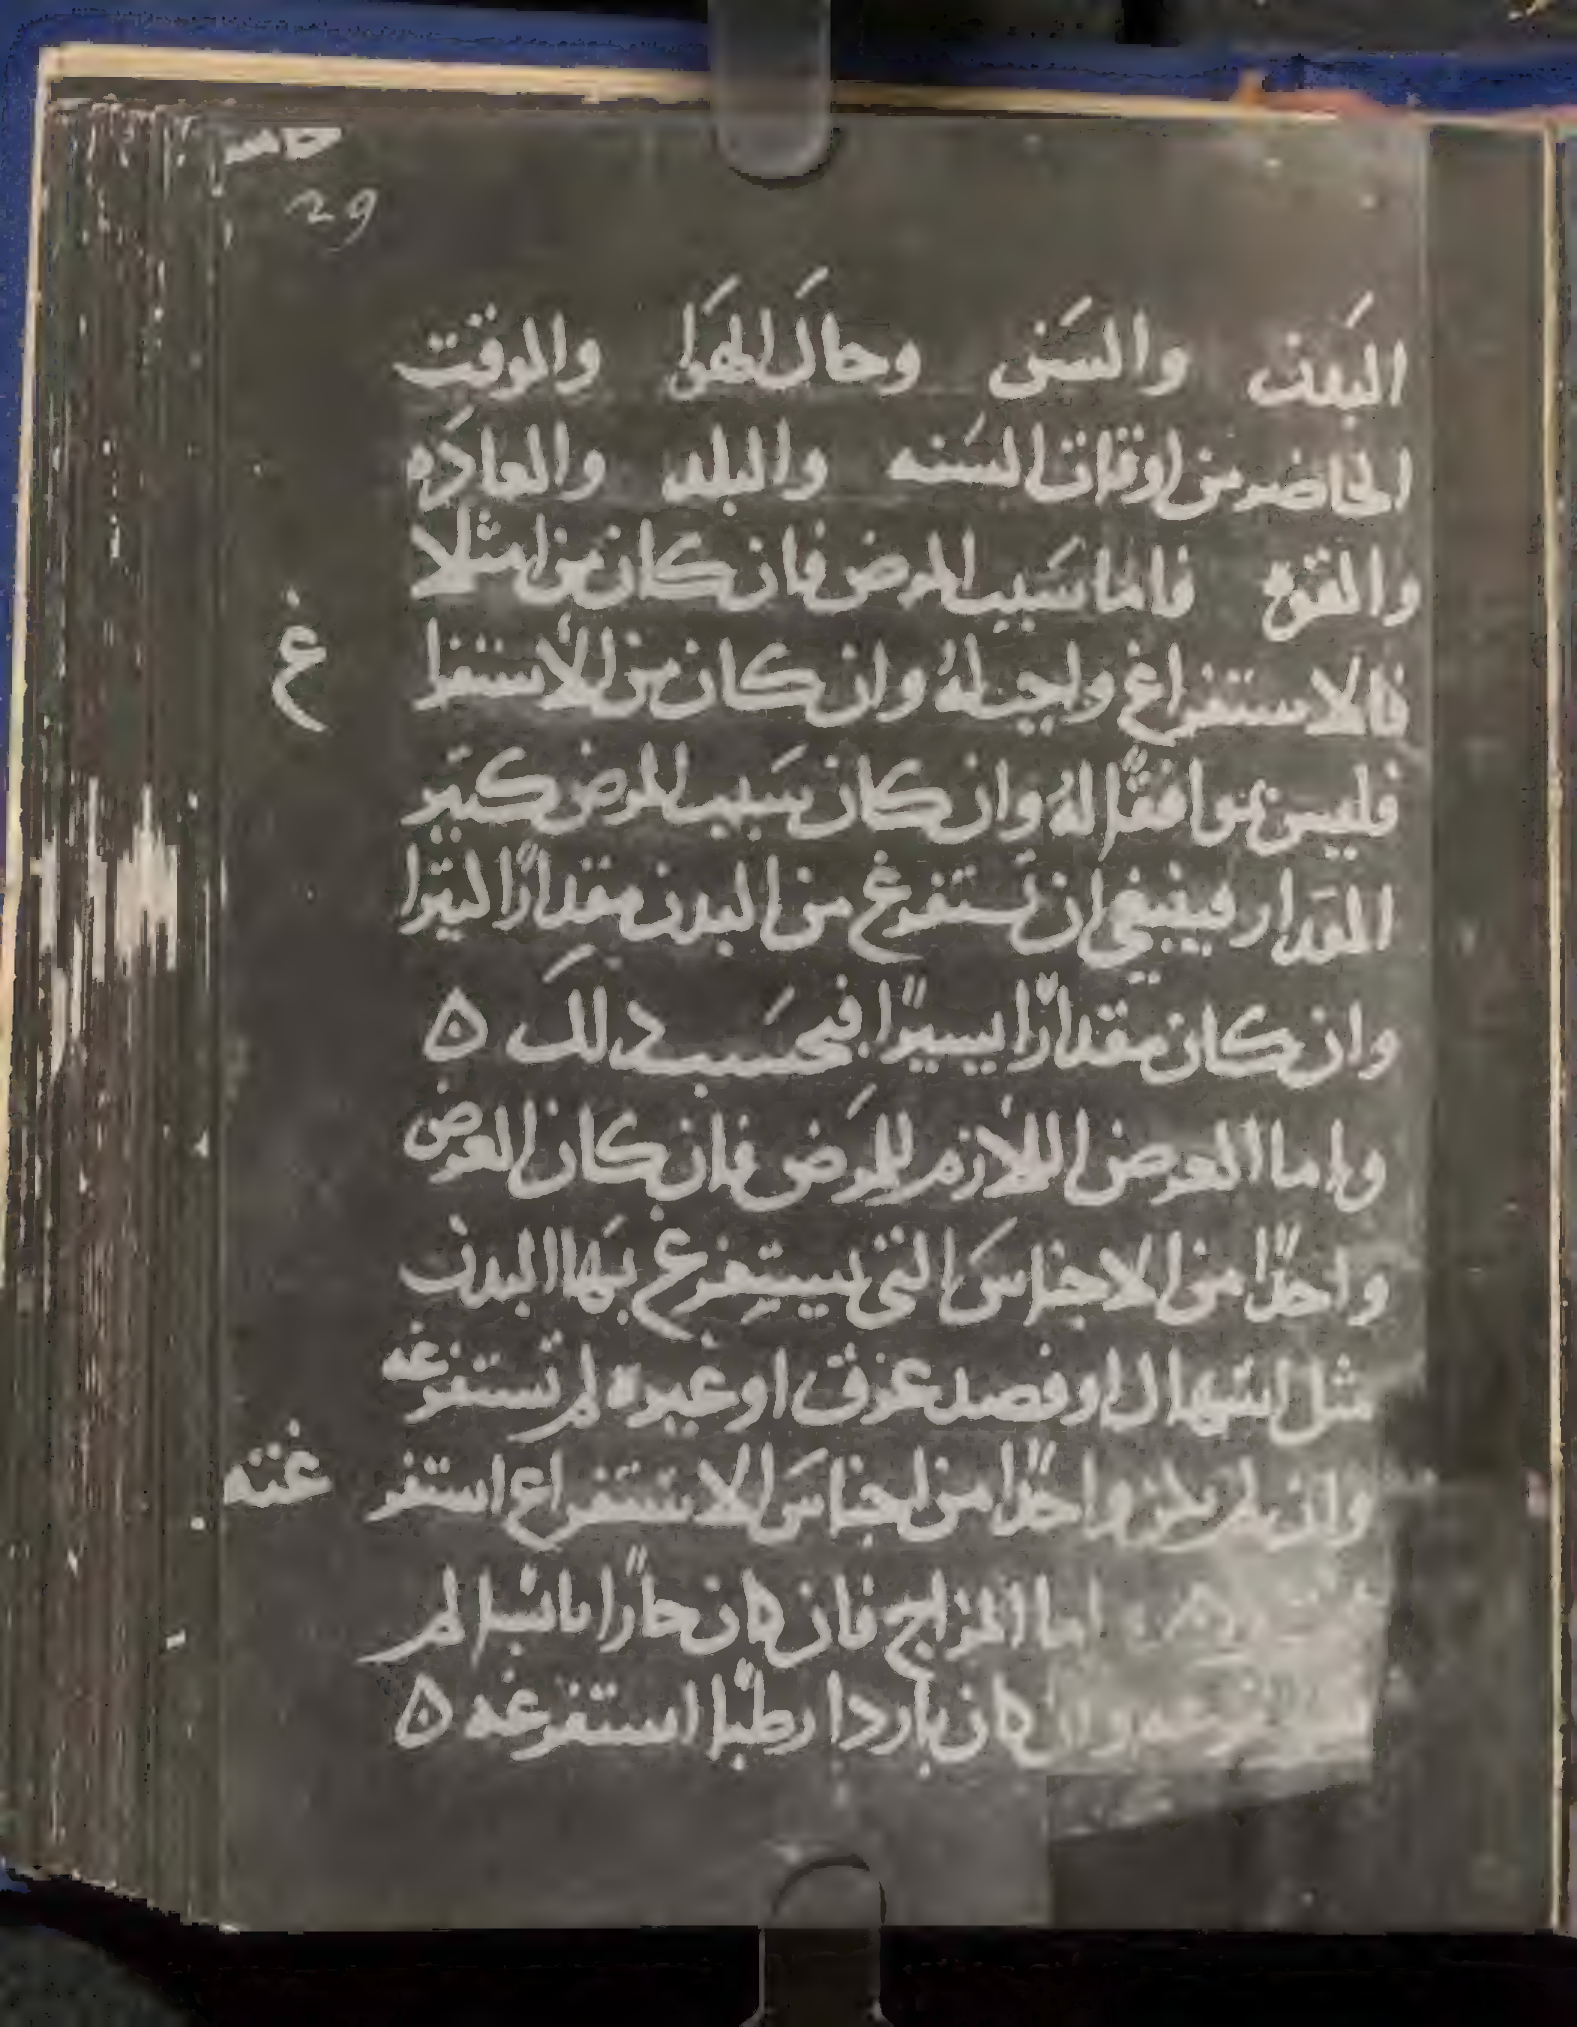 خامس
29
البدن والسن وحال الهوا والوقت
الحاضر من اوقات السنه والبلد والعادَه
والقوه فاما سَبب المرض فان كان من امتلا
فالاستفراغ واجب لهُ وان كان من الاستفرا غ
فليس بموافقًا لهُ وان كان سَبب المرض كبير
المقدار فينبغي ان تستفرغ من البدن مقدارًا كثيرا
وان كان مقدارًا يسيرًا فبحسَب ذلك ه
واما العرض اللازم للمرَض فان كان العرض
واحدًا من الاجناسَ التي يستفرغ بهَا البدن
مثل اسهال او فصد عرق او غيره لم تستفرغه
وان لم يكن واحدًا من اجناسَ الاستفراغ استفر غته
اما المزاج فان كان حارًا يابسًا لم
وان كان باردا رطبًا استفرغه ه